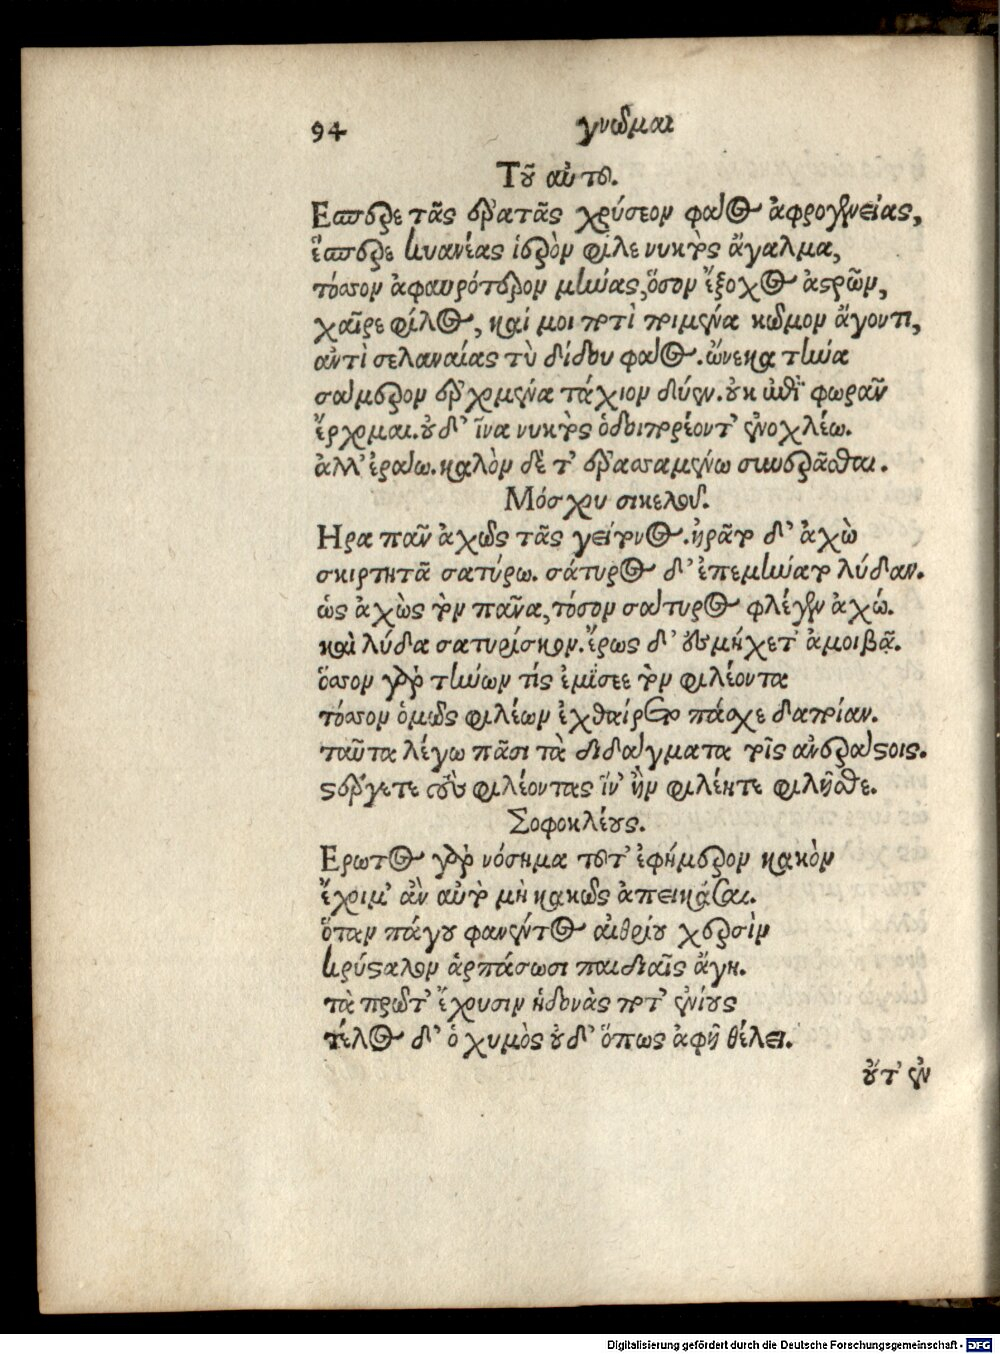 94 γνῶμαι
Τοῦ αὐτοῦ.
Εσπερε τᾶς ἐρατᾶς χρύσεον φάος ἀφρογενείας,
ἕσπερε κυανέας ἱερὸν φίλε νυκτὸς ἄγαλμα,
τόσσον ἀφαυρότερον μήνας, ὅσον ἔξοχος ἀστρῶν,
χαῖρε φίλος, καί μοι ποτὶ ποιμένα κῶμον ἄγοντι,
ἀντὶ σελαναίας τὺ δίδου φάος. ὥνεκα τήνα
σάμερον ἐρχομένα τάχιον δύεν. οὐκ ἐπὶ φωρὰν
ἔρχομαι. οὐδ' ἵνα νυκτὸς ὁδοιπορέοντ' ἐνοχλέω.
ἀλλ' ἐράω. καλὸν δὲ τ' ἐρασσαμένω συνερᾶσθαι.
Μόσχου σικελοῦ.
Ηρα πᾶν ἀχῶς τᾶς γείτονος. ἤρατο δ' ἀχὼ
σκιρτητᾶ σατύρω. σάτυρος δ' ἐπεμήνατο λύδαν.
ὡς ἀχὼς τὸν πᾶνα, τόσον σάτυρος φλέγεν ἀχώ.
καὶ λύδα σατυρίσκον. ἔρως δ' ἐσμήχετ' ἀμοιβᾷ.
ὅσσον γὰρ τήνων τίς ἐμίσεε τὸν φιλέοντα
τόσσον ὁμῶς φιλέων ἐχθαίρετο πάσχε δ' ἀποίαν.
ταῦτα λέγω πᾶσι τὰ διδάγματα τοῖς ἀνεράστοις.
στέργετε τοὺς φιλέοντας ἵν' ἢν φιλέητε φιλῆσθε.
Σοφοκλέους.
Ερωτος γὰρ νόσημα τοῦτ' ἐφήμερον κακὸν
ἔχοιμ' ἂν αὐτὸ μὴ κακῶς ἀπεικάσαι.
ὅταν πάγου φανέντος αἰθρίου χερσὶν
κρύσταλον ἁρπάσωσι παιδιαῖς ἄγη.
τὰ πρῶτ' ἔχουσιν ἡδονὰς ποτ' ἐνίους
τέλος δ' ὁ χυμὸς οὐδ' ὅπως ἀφῇ θέλει.
οὔτ' ἐν
Digitalisierung gefördert durch die Deutsche Forschungsgemeinschaft - DFG